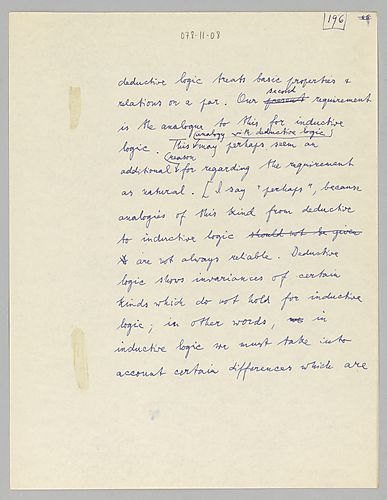 078-11-08
196
deductive logic treats basic properties &
relations on a par. Our present second requirement
is the analogue to this for inductive
logic. This (analogy with deductive logic) may perhaps seem an
additional (reason) for regarding the requirement
as natural. [I say "perhaps", because
analogies of this kind from deductive
to inductive logic should not be given
are not always reliable. Deductive
logic shows invariances of certain
kinds which do not hold for inductive
logic; in other words, in
inductive logic we must take into
account certain differences which are